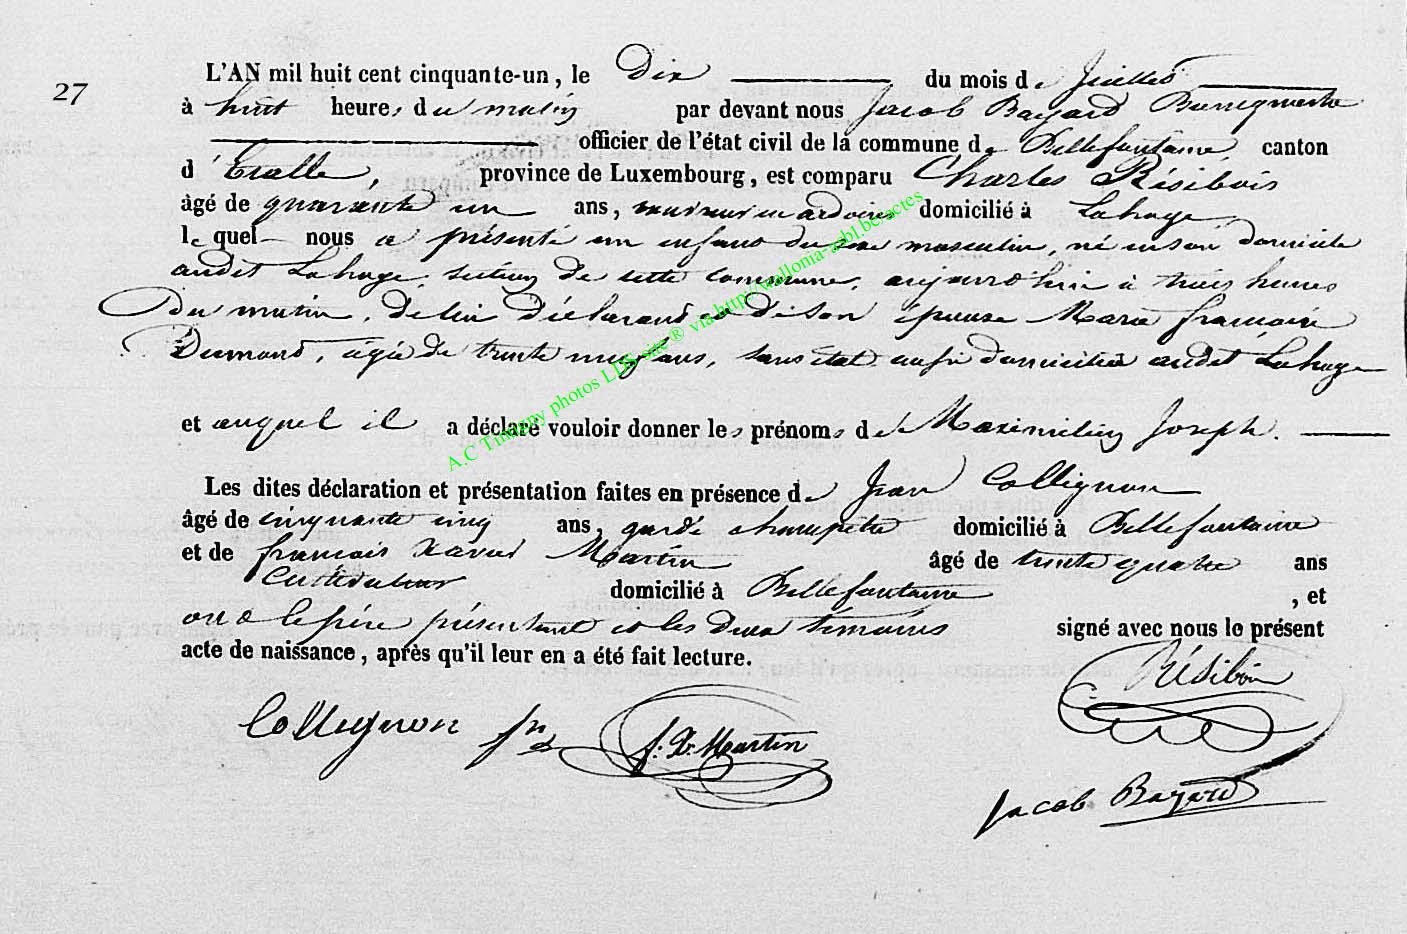 27
L'AN mil huit cent cinquante-un, le Dix du mois de Juillet
à huit heures du matin par devant nous Jacob Bayard Bourgmestre
officier de l'état civil de la commune de Bellefontaine, canton
d'Etalle, province de Luxembourg, est comparu Charles Résibois
âgé de quarante un ans, ardoises domicilié à Lahage
lequel nous a présenté un enfant du sexe masculin, né en son domicile
audit Lahage, section de cette commune, aujourd'hui à trois heures
du matin, de lui déclarant et de son épouse Marie françoise
Dumont, agée de trente neuf ans, sans état aussi domiciliée audit Lahage
et auquel il a déclaré vouloir donner les prénoms de Maximilien Joseph.
Les dites déclaration et présentation faites en présence de Jean Collignon
âgé de cinquante cinq ans, garde champêtre domicilié à Bellefontaine
et de françois Xavier Martin âgé de trente quatre ans
Cultivateur domicilié à Bellefontaine, et
ont le père présentant et les deux témoins signé avec nous le présent
acte de naissance, après qu'il leur en a été fait lecture.
Résibois
Collignon jn f. X. Martin
Jacob Bayard
A.C Tintigny photos LDS site® via http://walloma-asbl.be/actes